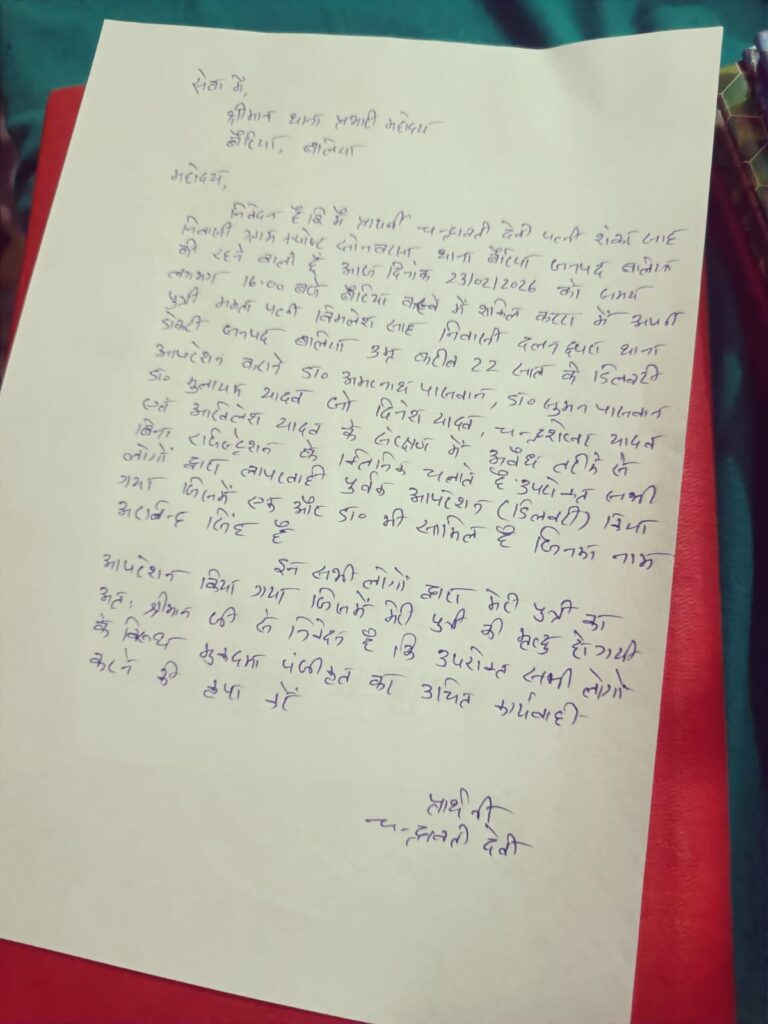 सेवा में,
श्रीमान थाना प्रभारी महोदय
बैरिया, बलिया
महोदय,
निवेदन है कि मैं प्रार्थनी चन्द्रावती देवी पत्नी शंकर साह
निवासी ग्राम व पोस्ट सोनबरसा थाना बैरिया जनपद बलिया
की रहने वाली हूँ आज दिनांक 23/02/2026 को समय
लगभग 16:00 बजे बैरिया कस्बे में कटरा में अपनी
पुत्री ममता पत्नी विमलेश साह निवासी दलनछपरा थाना
दोकटी जनपद बलिया उम्र करीब 22 साल के डिलवरी
आपरेशन कराने डा० अमरनाथ पासवान, डा० सुमन पासवान
डा० मुलायम यादव जो दिनेश यादव, चन्द्रशेखर यादव
एवं अखिलेश यादव के संरक्षण में अवैध तरीके से
बिना रजिस्ट्रेशन के क्लिनिक चलाते है उपरोक्त सभी
लोगों द्वारा लापरवाही पूर्वक आपरेशन (डिलवरी) किया
गया जिसमें एक और डा० भी सामिल है जिनका नाम
सिंह है
इन सभी लोगों द्वारा मेरी पुत्री का
आपरेशन किया गया जिसमें मेरी पुत्री की मृत्यु हो गयी
अतः श्रीमान जी से निवेदन है कि उपरोक्त सभी लोगों
के विरूध मुकदमा पंजीकृत कर उचित कार्यवाही
करने की कृपा करें
प्रार्थनी
चन्द्रावती देवी